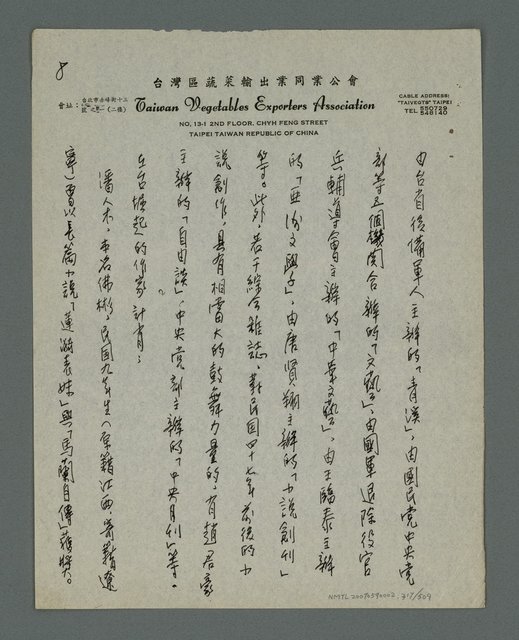 8
台灣區蔬菜輸出業同業公會
會址：台北市赤峰街十三號之一(二樓)
Taiwan Vegetables Exporters Association
CABLE ADDRESS:
"TAIVEGTS" TAIPEI
TEL. 550729
548140
NO, 13-1 2ND FLOOR, CHYH FENG STREET
TAIPEI TAIWAN REPUBLIC OF CHINA
由台省後備軍人主辦的「青溪」，由國民党中央党
部等五個機関合辦的「文藝」，由國軍退除役官
兵輔導會主辦的「中華文藝」，由王臨泰主辦
的「亞洲文學」，由唐賢翔主辦的「小說創刊」
等。此外，若干綜合雜誌，對民国四十七年前後的小
說創作，具有相當大的鼓舞力量的，有趙君豪
主辦的「自由談」，中央党部主辦的「中央月刊」等。
在台崛起的作家計有：
潘人木，本名佛彬，民國九年生（原籍江西，寄籍遼
寧）曾以長篇小說「蓮漪表妹」與「馬蘭自傳」獲獎。
NMTL20090590002 317/509